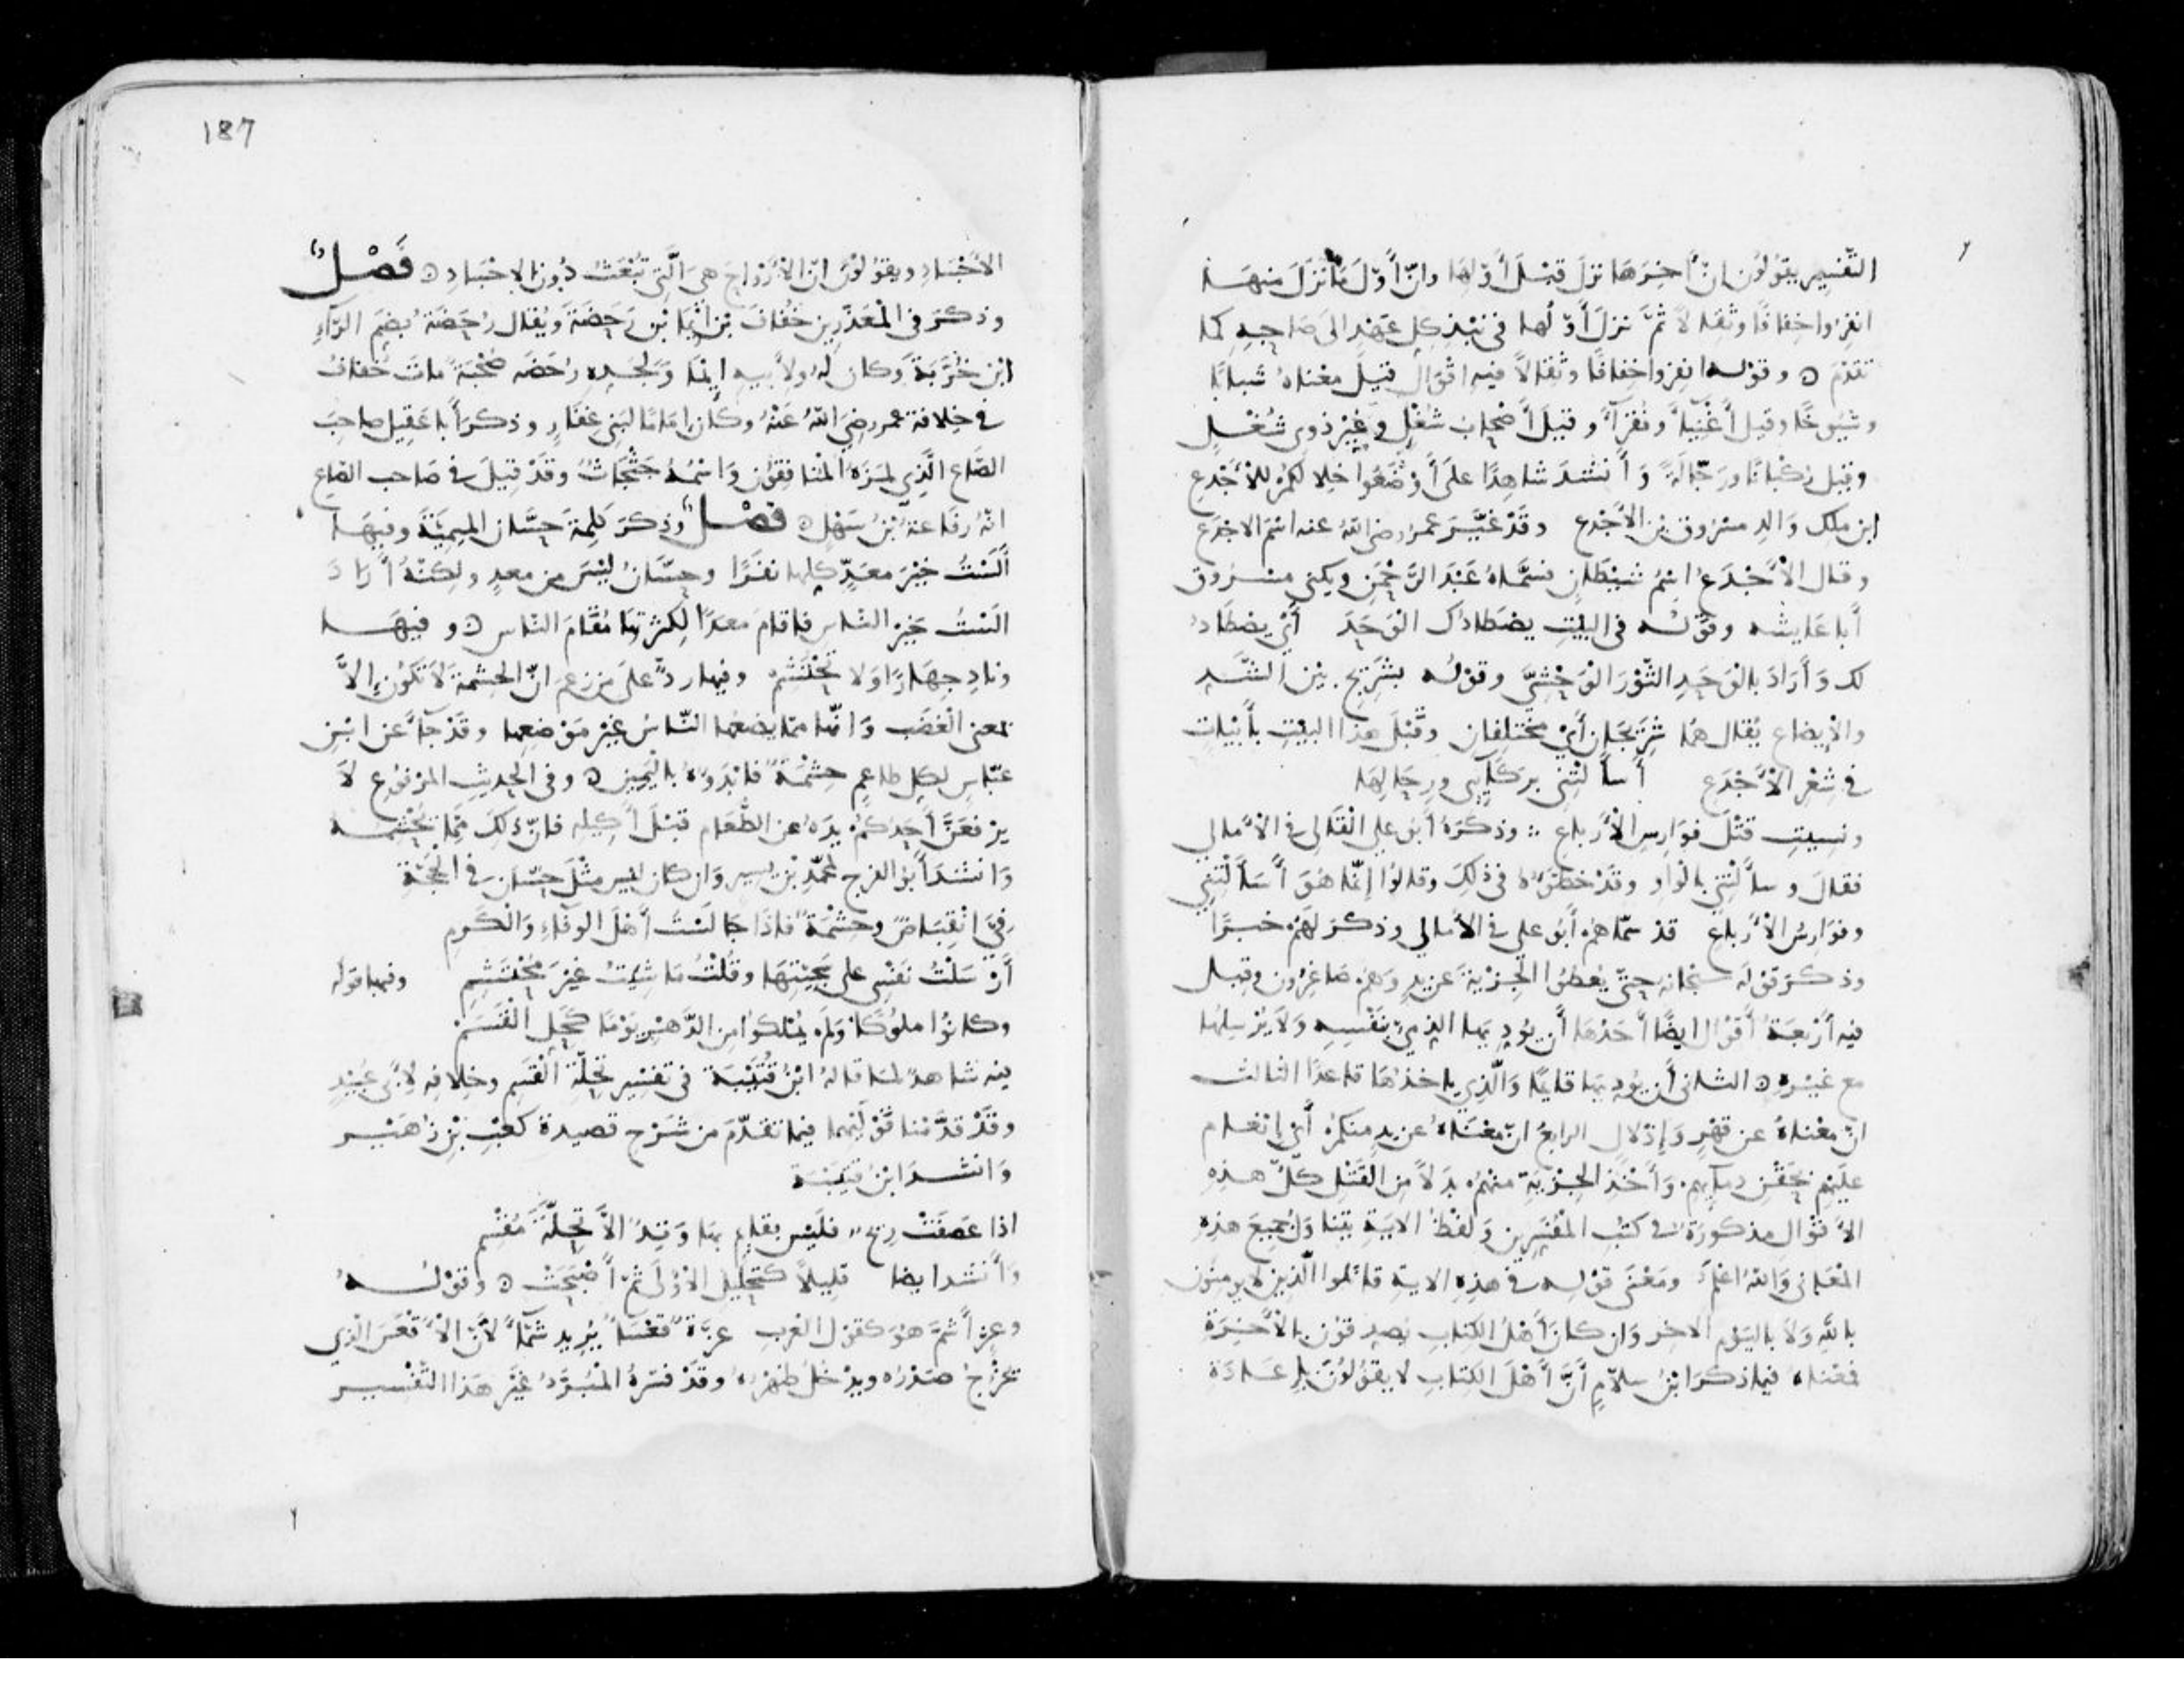 التفسير يقولون ان آخرها نزل قبل أولها وان أول ما نزل منها
انفروا خفافا وثقالا ثم نزل أولها في نبذ كل عهد الى صاحبه كما
تقدم ۞ وقوله انفروا خفافا وثقالا فيه اقوال قيل معناه شبابا
وشيوخا وقيل أغنياء وفقراء وقيل أصحاب شغل وغير ذوي شغل
وقيل ركبانا ورجالة وأنشد شاهدا على أوضعوا خلالكم للأجدع
ابن ملك والد مسروق بن الأجدع وقد غير عمر رضي الله عنه اسم الاجدع
وقال الأجدع اسم شيطان فسماه عبد الرحمن ويكنى مسروق
أبا عايشه وقوله في البيت يصطادك الوحد أي يصطاد
لك وأراد بالوحد الثور الوحشي وقوله بشريج بين الشد
والإيضاع يقال هما شريجان أي مختلفان وقبل هذا البيت بأبيات
في شعر الأجدع أسألتني بركآيبي ورحالها
ونسيت قتل فوارس الأرباع ؛ وذكره أبو علي القالي في الأمالي
فقال وسألتني بالواو وقد خطئوه في ذلك وقالوا إنما هو أسألتني
وفوارس الأرباع قد سماهم أبو علي في الأمالي وذكر لهم خبرا
وذكر قوله سبحانه حتى يعطوا الجزية عن يد وهم صاغرون وقيل
فيه أربعة أقوال ايضا أحدها أن يودي بها الذمي بنفسه ولا يرسلها
مع غيره ۞ الثاني أن يوديها قايما والذي ياخذها قاعدا الثالث
ان معناه عن قهر وإذلال الرابع ان معناه عن يد منكم أي إنعام
عليهم بحقن دمآيهم وأخذ الجزية منهم بدلا من القتل كل هذه
الأقوال مذكورة في كتب المفسرين ولفظ الاية يتناول جميع هذه
المعاني والله اعلم ومعنى قوله في هذه الاية قاتلوا الذين لا يومنون
بالله ولا باليوم الاخر وان كان أهل الكتاب يصدقون بالأخرة
فمعناه فيما ذكر ابن سلام أن أهل الكتاب لا يقولون باعادة
187
الأجساد ويقولون ان الأرواح هي التي تبعث دون الاجساد ۞ فصل
وذكر في المعذرين خفاف بن ايما بن رحضة ويقال رحضة بضم الرآء
ابن خربة وكان له ولأبيه ايما ولجده رحضه صحبة مات خفاف
في خلافة عمر رضي الله عنه وكان اماما لبني غفار وذكر أبا عقيل صاحب
الصاع الذي لمزه المنافقون واسمه جثجاث وقد قيل في صاحب الصاع
انه رفاعة بن سهل ۞ فصل وذكر كلمة حسان الميمية وفيها
ألست خير معد كلها نفرا وحسان ليس من معد ولكنه أراد
الست خير الناس فاقام معدا لكثرتها مقام الناس ۞ وفيها
وناد جهارا ولا تحتشم وفيها رد على من زعم ان الحشمة لا تكون الا
بمعنى الغضب وانها مما يضعها الناس غير موضعها وقد جآ عن ابن
عباس لكل طاعم حشمة فابدوه باليمين ۞ وفي الحديث المرفوع لا
يرفعن أحدكم يده عن الطعام قبل أكيله فان ذلك مما يحشمه
وانشد أبو الفرج لمحمد بن يسير وان كان ليس مثل حسان في الحجة
في انقباض وحشمة فاذا جالست أهل الوفاء والكرم
أرسلت نفسي على سجيتها وقلت ما شيت غير محتشم وفيها قوله
وكانوا ملوكا ولم يملكوا من الدهر يوما كحل القسم
فيه شاهد لما قاله ابن قتيبة في تفسير تحلة القسم وخلافه لأبي عبيد
وقد قدمنا قوليهما فيما تقدم من شرح قصيدة كعب بن زهير
وانشد ابن قتيبة
اذا عصفت ريح فليس بقايم بها وتد الا تحلة مقسم
وأنشد ايضا قليلا كتحليل الأولى ثم أصبحت ۞ وقوله
وعز أشم هو كقول العرب عزة قعسا يريد شمآ لأن الأقعس الذي
يخرج صدره ويدخل ظهره وقد فسره المبرد غير هذا التفسير